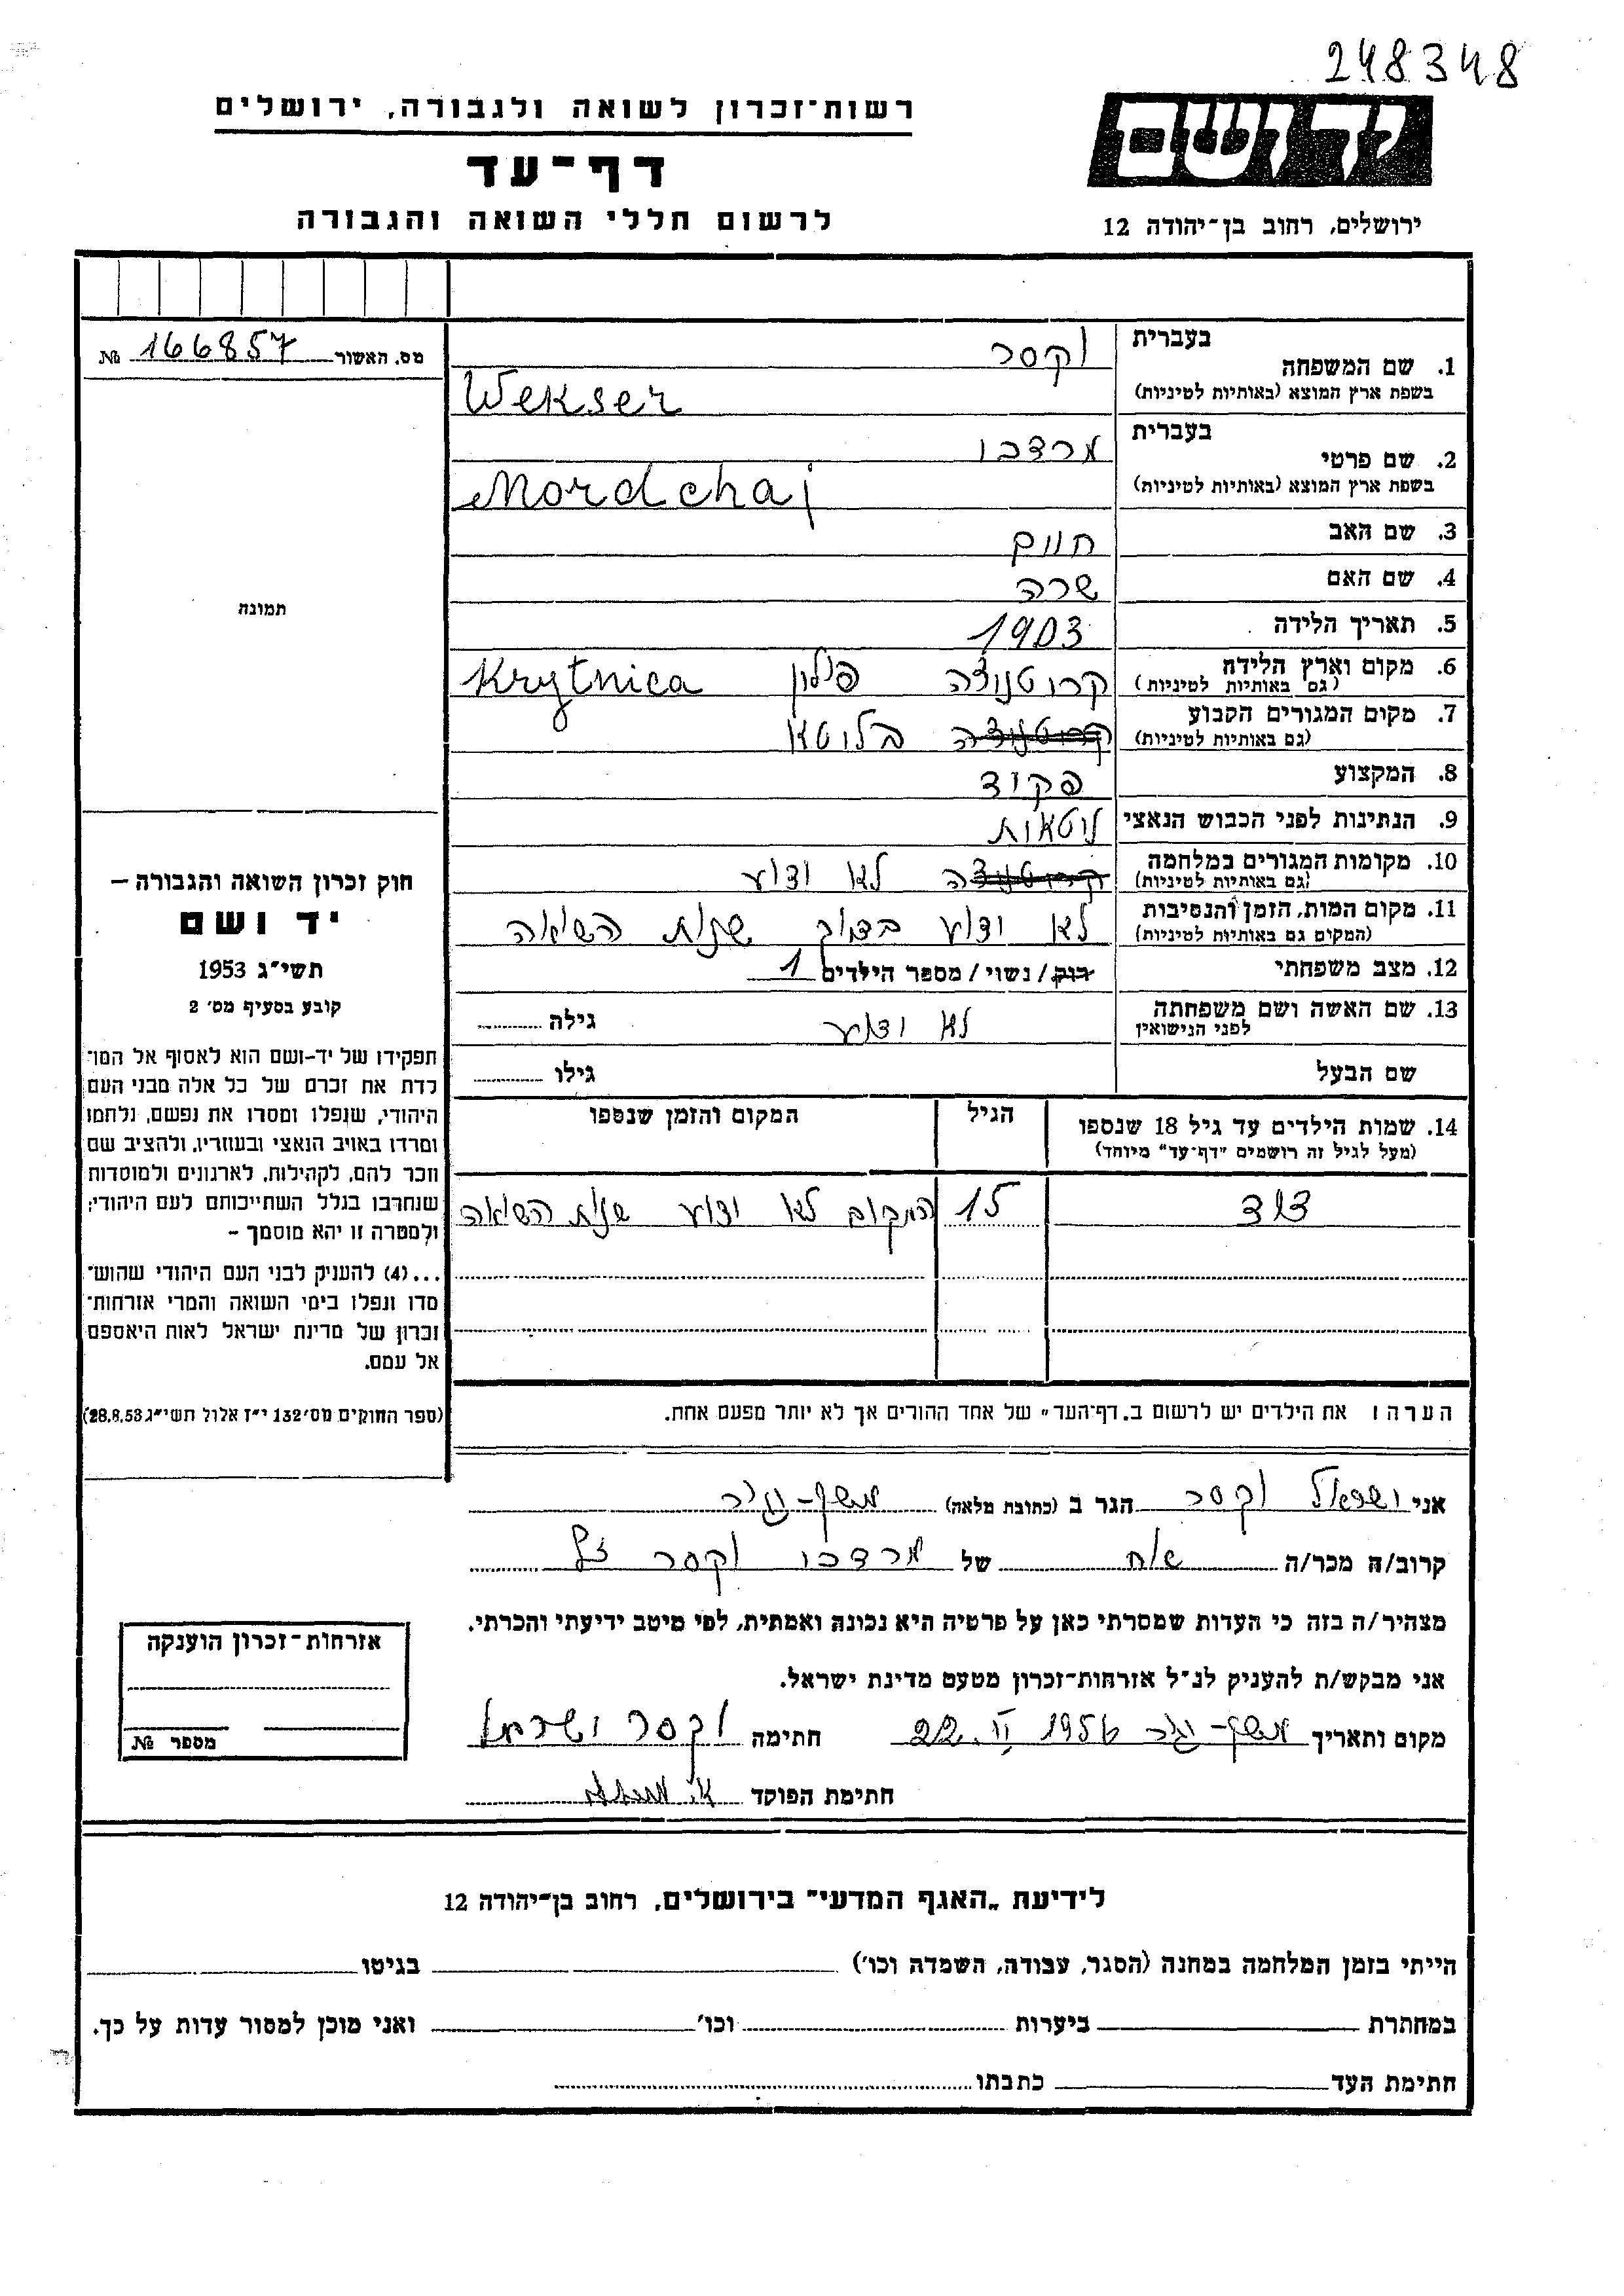 248348
רשות-זכרון לשואה ולגבורה, ירושלים
יד ושם
דף-עד
לרשום חללי השואה והגבורה
ירושלים, רחוב בן-יהודה 12
מס. האשור 166857 №
בעברית וקסר
1. שם המשפחה
בשפת ארץ המוצא (באותיות לטיניות) Wekser
בעברית מרדכי
2. שם פרטי
בשפת ארץ המוצא (באותיות לטיניות) Mordchaj
3. שם האב חיים
4. שם האם שרה
5. תאריך הלידה 1903
6. מקום וארץ הלידה קרוטניצה פולין Krytnica
(גם באותיות לטיניות)
7. מקום המגורים הקבוע קרוטניצה בליטא
(גם באותיות לטיניות)
8. המקצוע פקיד
9. הנתינות לפני הכבוש הנאצי ליטאית
10. מקומות המגורים במלחמה קרוטניצה לא ידוע
(גם באותיות לטיניות)
11. מקום המות, הזמן והנסיבות לא ידוע בתוך שנות השואה
(המקום גם באותיות לטיניות)
12. מצב משפחתי רוק / נשוי / מספר הילדים 1
13. שם האשה ושם משפחתה לא ידוע גילה
לפני הנישואין
שם הבעל גילו
14. שמות הילדים עד גיל 18 שנספו הגיל המקום והזמן שנספו
(מעל לגיל זה רושמים "דף-עד" מיוחד)
דוד 15 המקום לא ידוע שנות השואה
הערה ! את הילדים יש לרשום ב„דף-העד" של אחד ההורים אך לא יותר מפעם אחת.
תמונה
חוק זכרון השואה והגבורה –
יד ושם
תשי"ג 1953
קובע בסעיף מס' 2
תפקידו של יד-ושם הוא לאסוף אל המו־
לדת את זכרם של כל אלה מבני העם
היהודי, שנפלו ומסרו את נפשם, נלחמו
ומרדו באויב הנאצי ובעוזריו, ולהציב שם
וזכר להם, לקהילות, לארגונים ולמוסדות
שנחרבו בגלל השתייכותם לעם היהודי;
ולמטרה זו יהא מוסמך –
...(4) להעניק לבני העם היהודי שהוש־
מדו ונפלו בימי השואה והמרי אזרחות־
זכרון של מדינת ישראל לאות היאספם
אל עמם.
(ספר החוקים מס' 132 י"ז אלול תשי"ג 28.8.53)
אני ישראל וקסר הגר ב (כתובת מלאה)
קרוב/ה מכר/ה אח של מרדכי וקסר ז"ל
מצהיר/ה בזה כי העדות שמסרתי כאן על פרטיה היא נכונה ואמתית, לפי מיטב ידיעתי והכרתי.
אני מבקש/ת להעניק לנ"ל אזרחות-זכרון מטעם מדינת ישראל.
מקום ותאריך 22. II 1956 חתימה וקסר ישראל
חתימת הפוקד
אזרחות-זכרון הוענקה
מספר №
לידיעת „האגף המדעי" בירושלים, רחוב בן-יהודה 12
הייתי בזמן המלחמה במחנה (הסגר, עבודה, השמדה וכו') בגיטו
במחתרת ביערות וכו' ואני מוכן למסור עדות על כך.
חתימת העד כתבתו